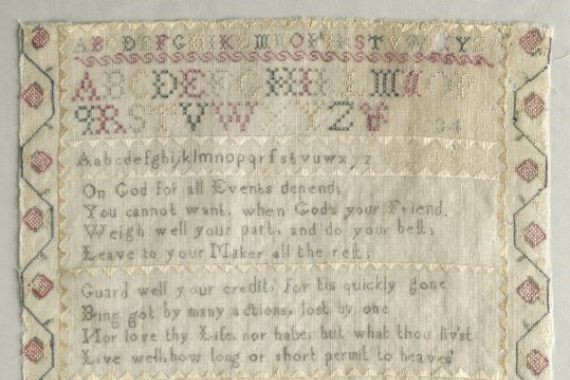 ABCDEFGHIKLMNOPQRSTVWXYZ
ABCDEFGHIKLMNOP
QRSTVWXYZ& 34
Aabcdefghijklmnopqrſstvuwxyz
On God for all Events depend;
You cannot want, when God's your Friend.
Weigh well your part, and do your beſt;
Leave to your Maker all the reſt;
Guard well your credit, for tis quickly gone
Being got by many actions, lost by one
Nor love thy Life, nor hate, but what thou liv'st
Live well, how long or short permit to heaven